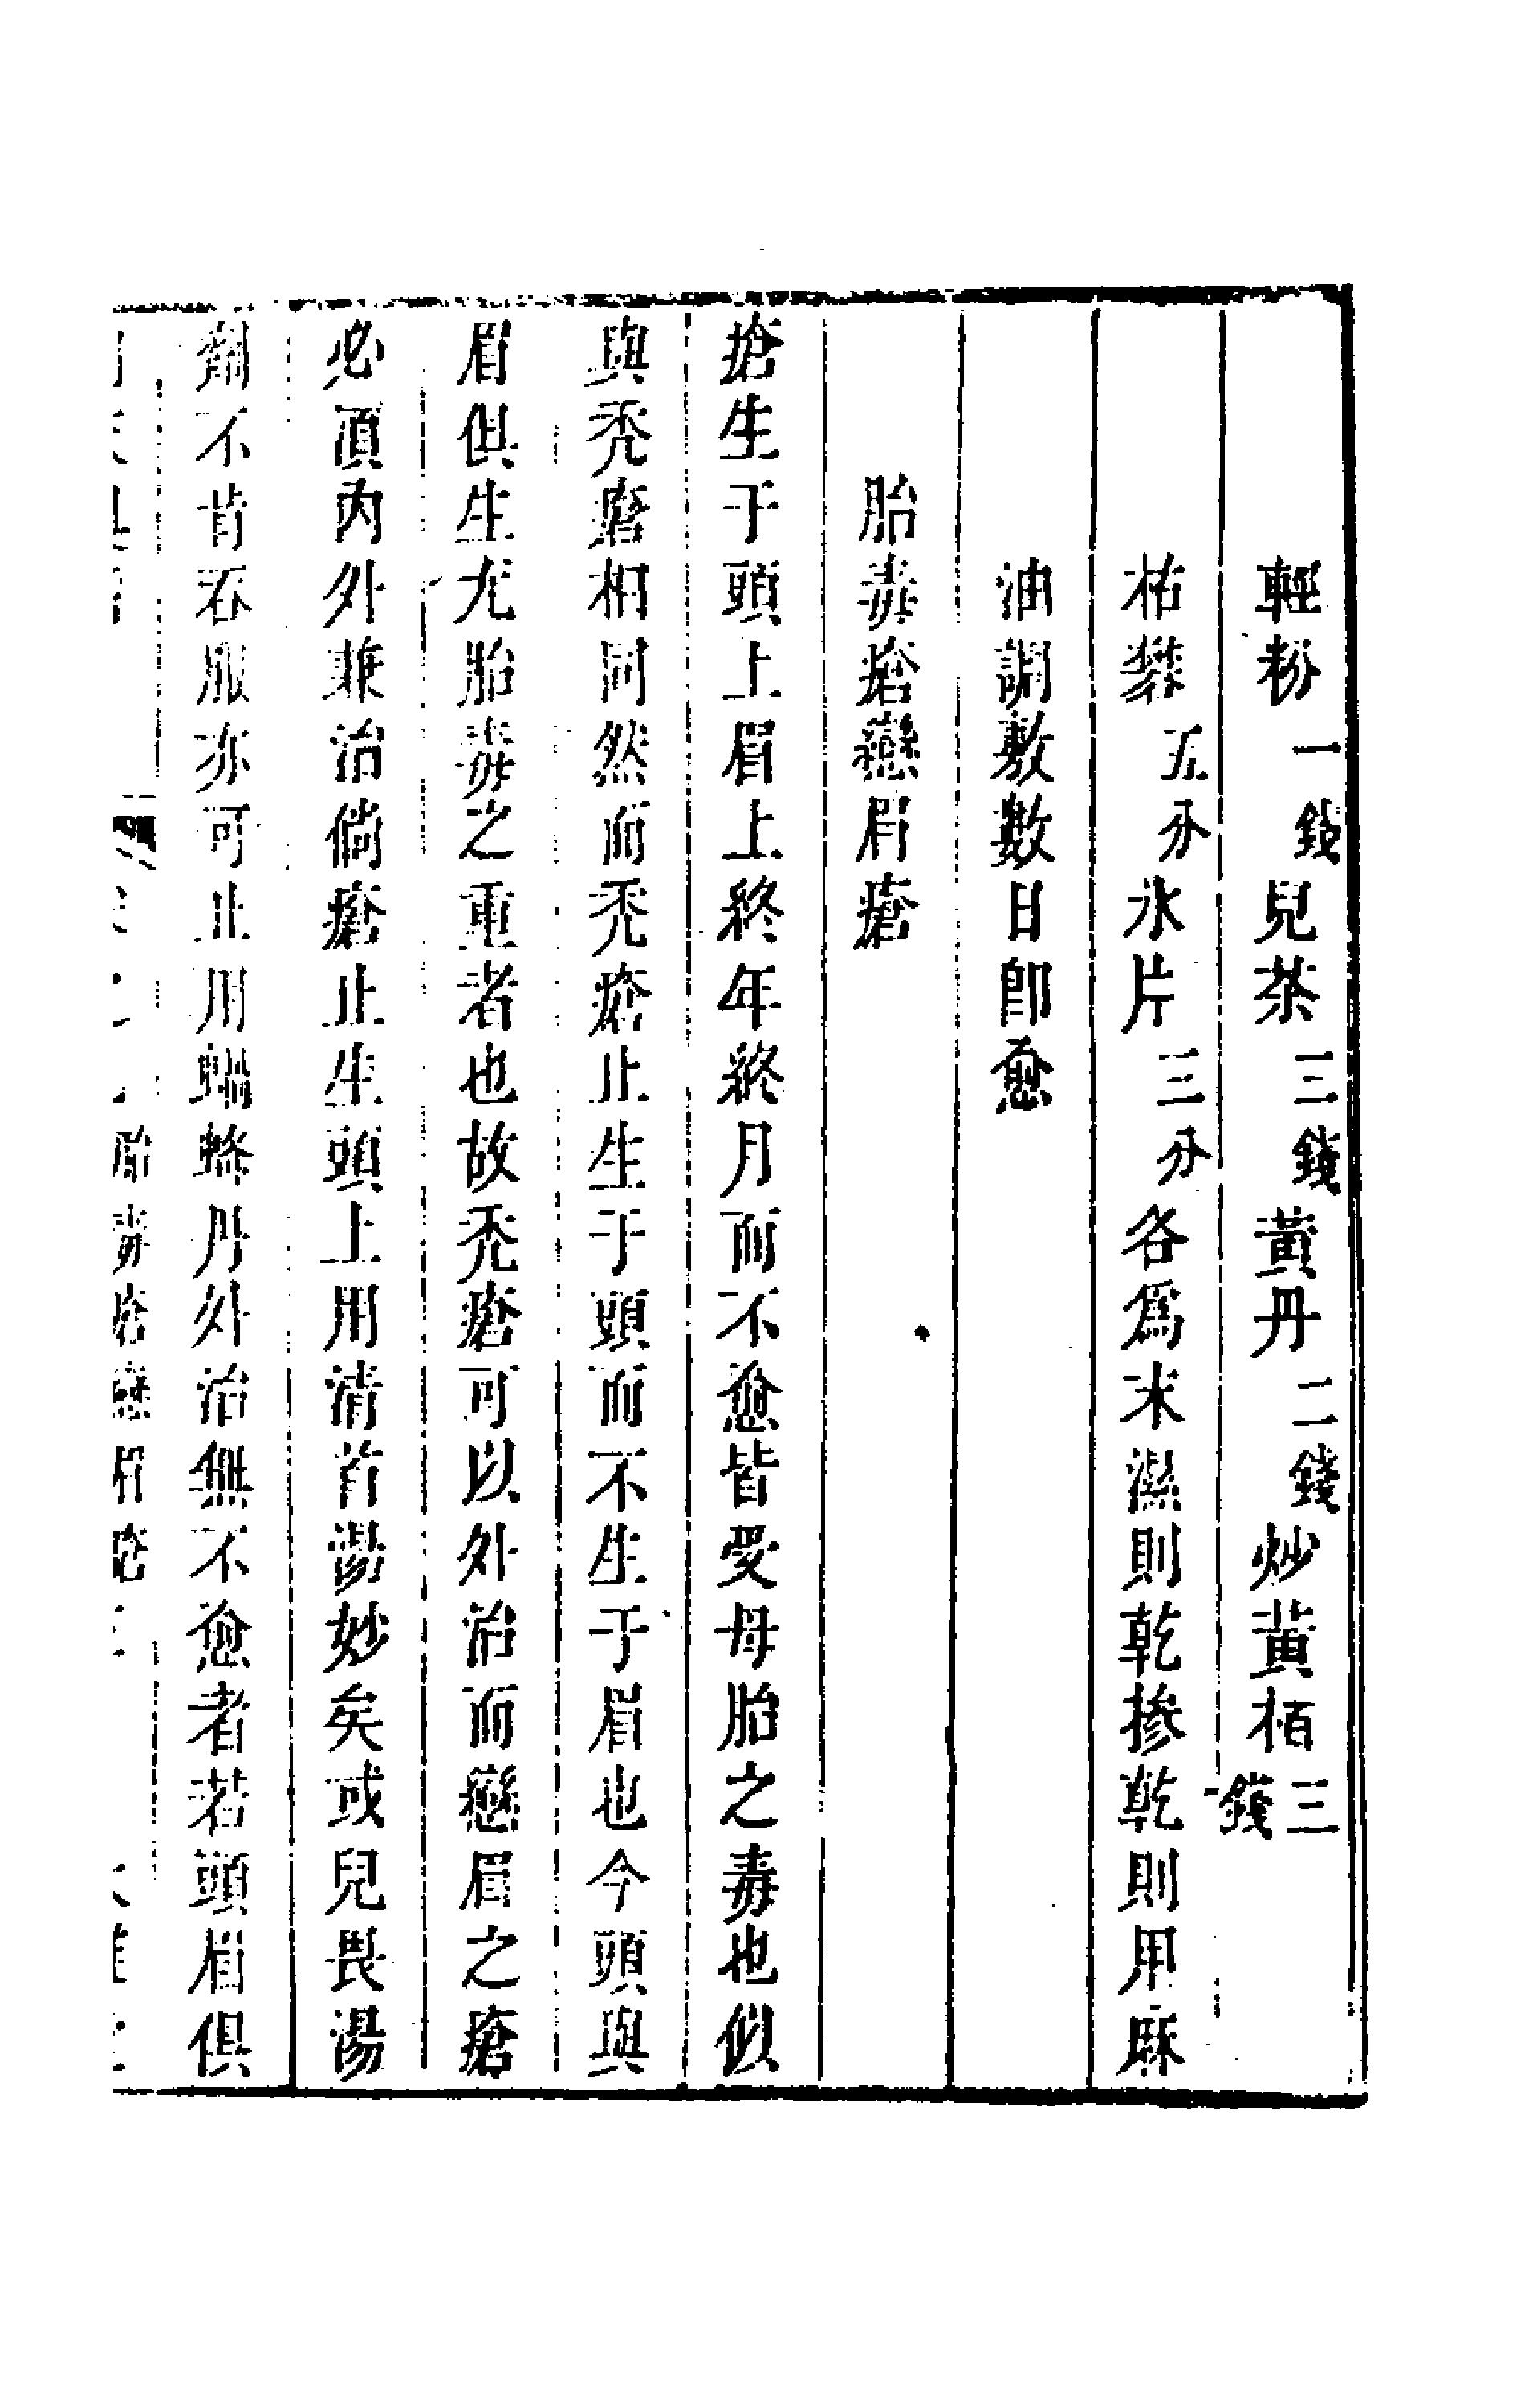 輕粉一錢兒茶三錢黃丹二錢炒黃栢三錢
枯礬五分氷片三分各爲末濕則乾摻乾則用麻
油調敷數日卽愈
胎毒瘡戀眉瘡
瘡生于頭上眉上終年終月而不愈皆受母胎之毒也似
與禿瘡相同然而禿瘡止生于頭而不生于眉也今頭與
眉俱生尤胎毒之重者也故禿瘡可以外治而戀眉之瘡
必須內外兼治倘瘡止生頭上用清首湯妙矣或兒畏湯
劑不肯吞服亦可止用蝸蜂丹外治無不愈者若頭眉俱
胎毒瘡戀眉瘡